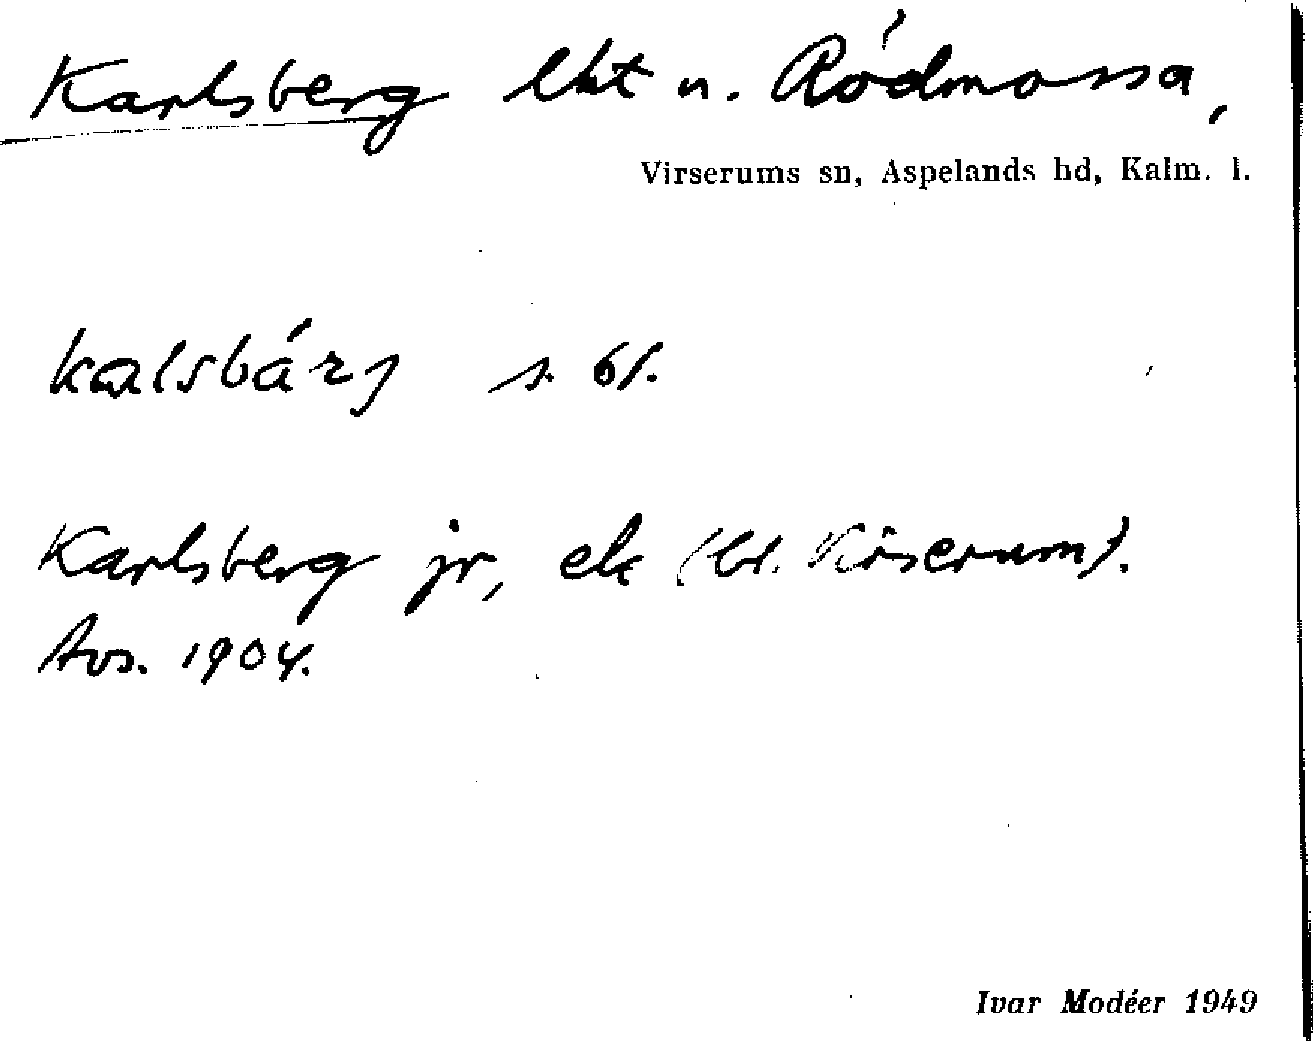 Karlsberg lht u. Rödmossa,
Virserums sn, Aspelands hd, Kalm. l.
kalsbárj s. 61.
Karlsberg jr, ek (bl. Virserum).
Avs. 1904.
Ivar Modéer 1949